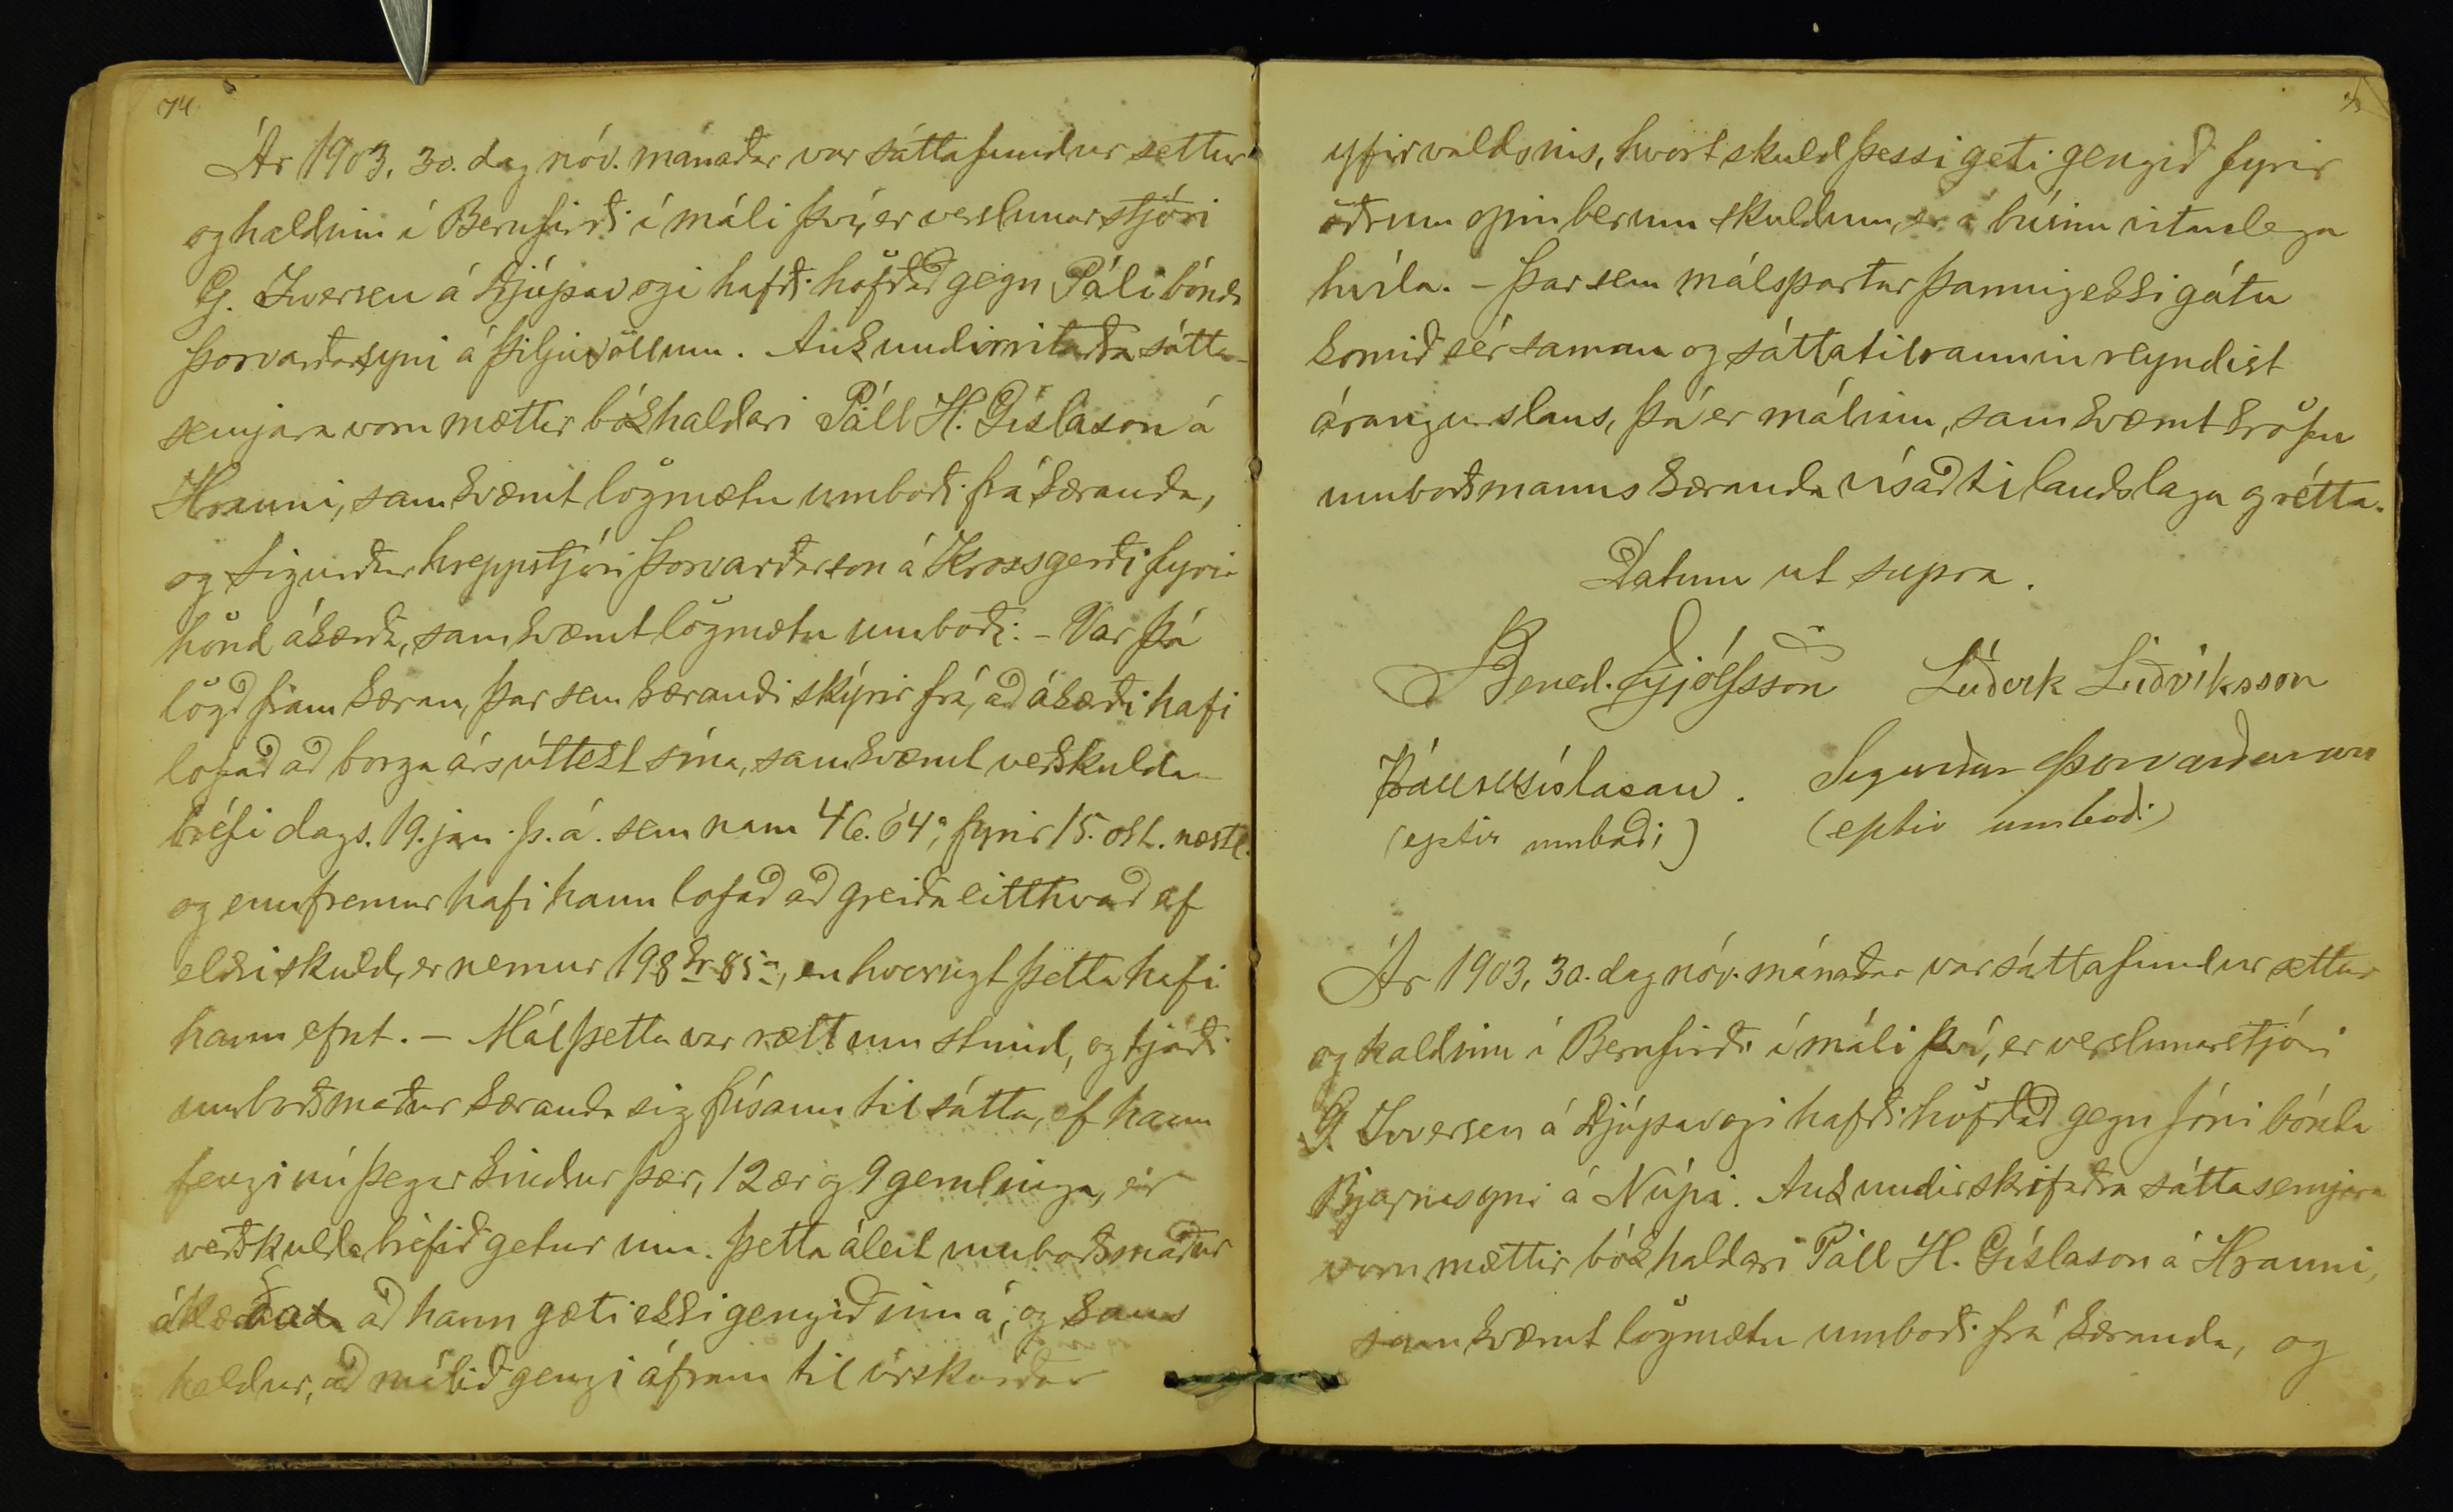 74.
Ár 1903, 30. dag nóv. mánaðar var sáttafundur settur
og haldinn í Berufirði í máli því, er verslunarstjóri
G. Iversen á Djúpavogi hafði höfðað gegn Páli bónda
Þorvarðarsyni á Þiljuvöllum. Auk undirritaðra sátta-
semjara voru mættir bókhaldari Páll H. Gíslason á
Hrauni, samkvæmt lögmætu umboði frá kæranda,
og Sigurður hreppstjóri Þorvarðarson á Krossgerði fyrir
hönd ákærða, samkvæmt lögmætu umboði. - Var þá
lögð fram kæran, þar sem kærandi skýrir frá, að ákærði hafi
lofað að borga ársúttekt sína, samkvæmt veðskulda-
bréfi dags. 19. jan. þ. á. sem nam 64 a, fyrir 15. okt. næstl.
og ennfremur hafi hann lofað að greiða eitthvað af
eldri skuld, er nemur 198 kr 85 a, en hvorugt þetta hafi
hann efnt. - Mál þetta var rætt um stund, og tjáði
umboðsmaður kæranda sig fúsann til sátta, ef hann
fengi nú þegar kindur þær, 12 ær og 9 gemlinga, er
veðskuldabréfið getur um. Þetta áleit umboðsmaður
ákærða að hann gæti ekki gengið inn á, og kaus
heldur, að málið gengi áfram til úrskurðar
yfirvaldsins, hvort skuld þessi geti gengið fyrir
öðrum opinberum skuldum, er á búinu vitanlega
hvíla. - Þar sem málspartar þannig ekki gátu
komið sér saman og sáttatilraunin reyndist
árangurslaus, þá er málinu, samkvæmt kröfu
umboðsmanns kæranda vísað til landslaga og rétta.
Datum ut supra.
Bened. Eyjólfsson Lúðvík Lúðvíksson
Páll H Gíslason. Sigurður Þorvarðarson
(eptir umboði) (eptir umboði)
Ár 1903, 30. dag nóv. mánaðar var sáttafundur settur
og haldinn í Berufirði í máli því, er verslunarstjóri
G. Iversen á Djúpavogi hafði höfðað gegn Jóni bónda
Bjarnasyni á Núpi. Auk undirskrifaðra sáttasemjara
voru mættir bókhaldari Páll H. Gíslason á Hrauni,
samkvæmt lögmætu umboði frá kæranda, og